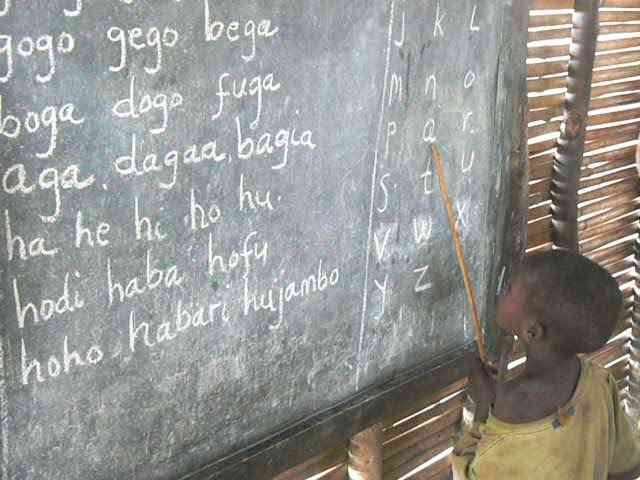 gogo gego bega
boga dogo fuga
aga. dagaa. bagia
ha he hi ho hu.
hodi haba hofu
hoho habari hujambo
J K L
m n o
p q r.
s t u
v w x
y z